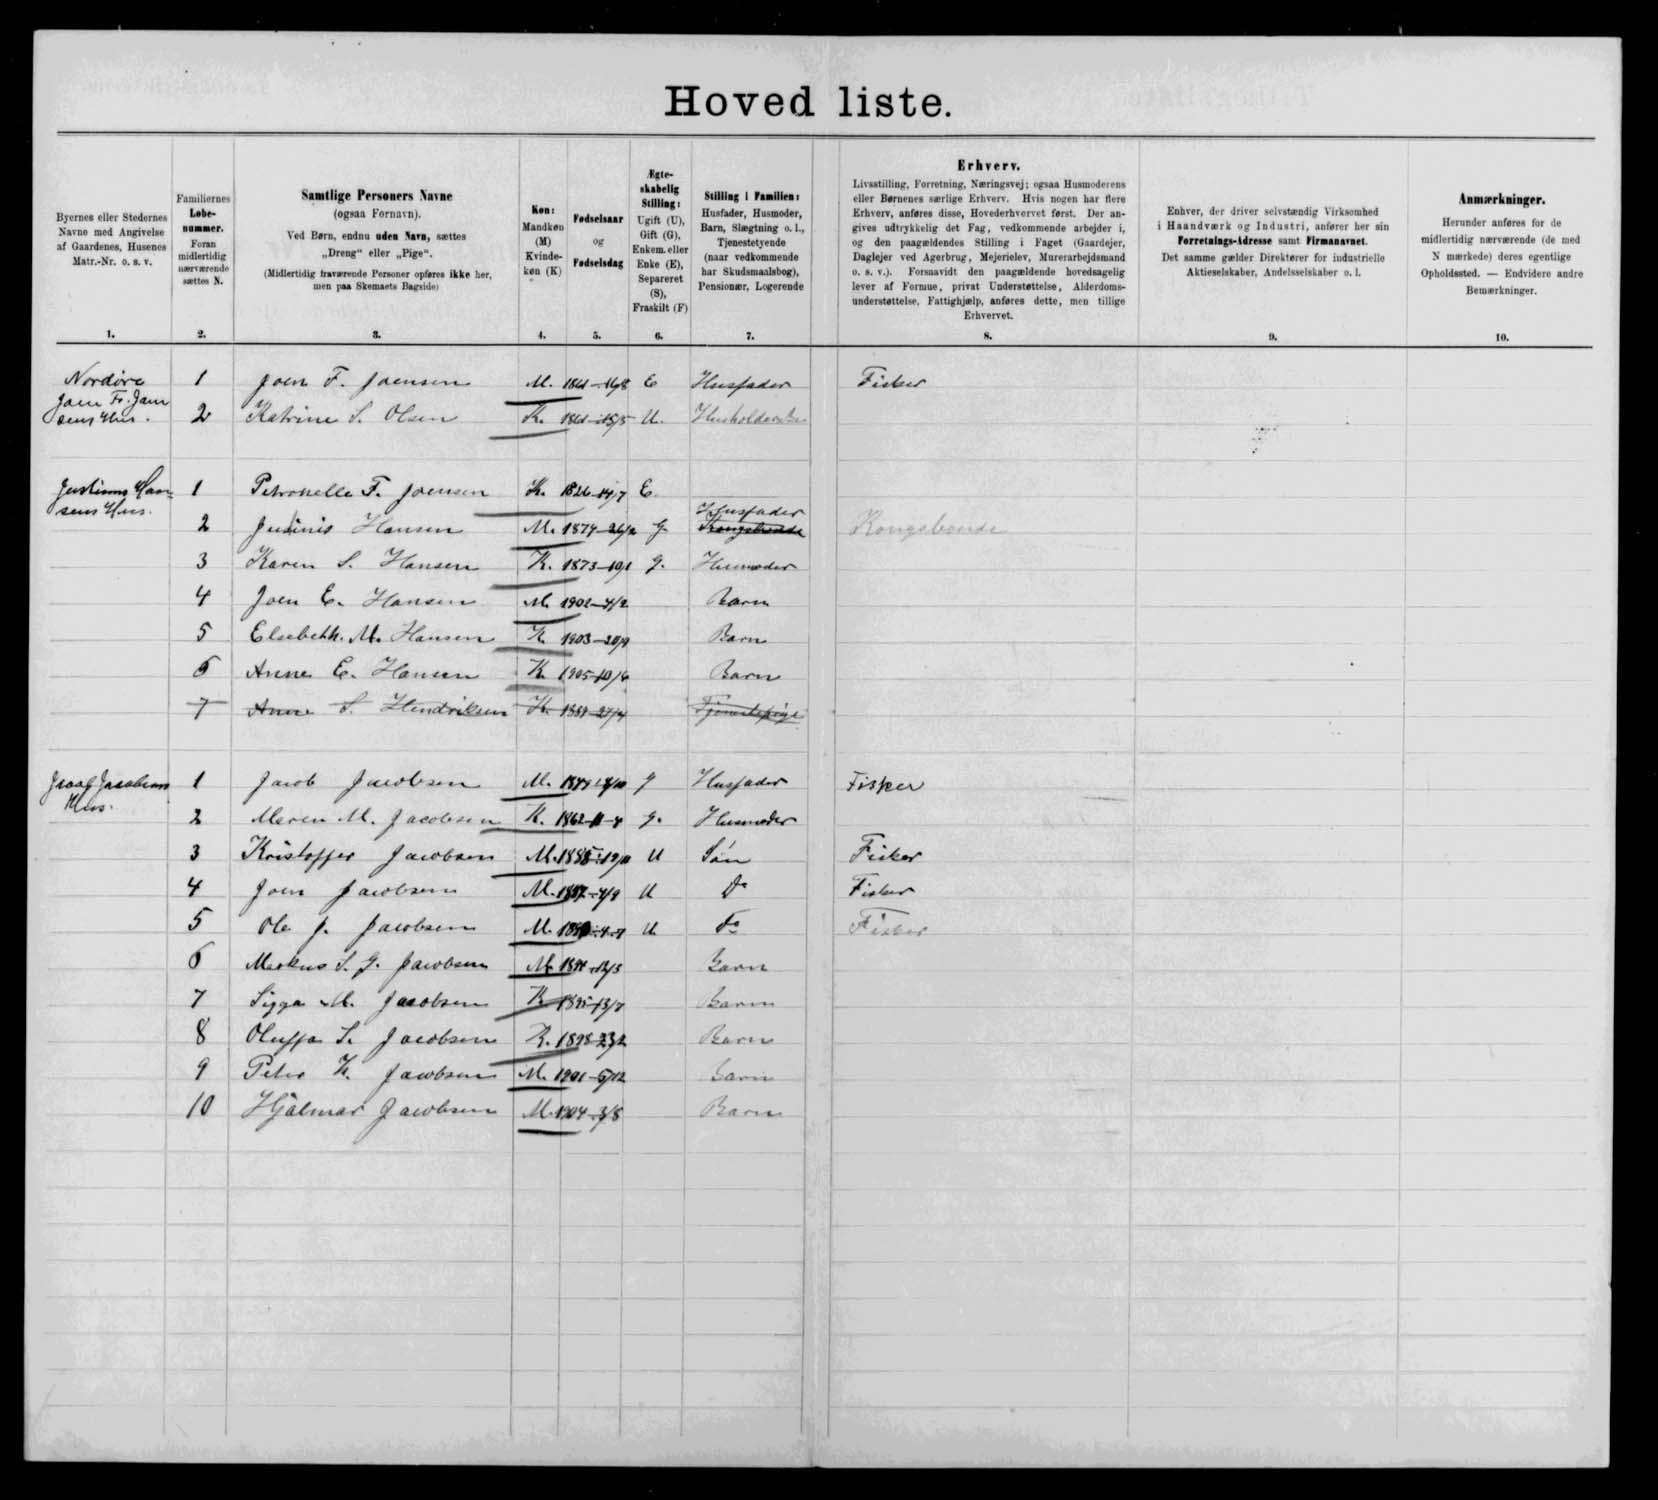 Hoved liste.
Byernes eller Stedernes
Navne med Angivelse
af Gaardenes, Husenes
Matr.-Nr. o. s. v.
1.
Familiernes
Løbe-
nummer.
Foran
midlertidig
nærværende
sættes N.
2.
Samtlige Personers Navne
(ogsaa Fornavn).
Ved Børn, endnu uden Navn, sættes
„Dreng“ eller „Pige“.
(Midlertidig fraværende Personer opføres ikke her,
men paa Skemaets Bagside)
3.
Køn:
Mandkøn
(M)
Kvinde-
køn (K)
4.
Fødselsaar
og
Fødselsdag
5.
Ægte-
skabelig
Stilling:
Ugift (U),
Gift (G),
Enkem. eller
Enke (E),
Separeret
(S),
Fraskilt (F)
6.
Stilling i Familien:
Husfader, Husmoder,
Barn, Slægtning o. l.,
Tjenestetyende
(naar vedkommende
har Skudsmaalsbog),
Pensionær, Logerende
7.
Erhverv.
Livsstilling, Forretning, Næringsvej; ogsaa Husmoderens
eller Børnenes særlige Erhverv. Hvis nogen har flere
Erhverv, anføres disse, Hovederhvervet først. Der an-
gives udtrykkelig det Fag, vedkommende arbejder i,
og den paagældendes Stilling i Faget (Gaardejer,
Daglejer ved Agerbrug, Mejerielev, Murerarbejdsmand
o. s. v.). Forsaavidt den paagældende hovedsagelig
lever af Formue, privat Understøttelse, Alderdoms-
understøttelse, Fattighjælp, anføres dette, men tillige
Erhvervet.
8.
Enhver, der driver selvstændig Virksomhed
i Haandværk og Industri, anfører her sin
Forretnings-Adresse samt Firmanavnet.
Det samme gælder Direktører for industrielle
Aktieselskaber, Andelsselskaber o. l.
9.
Anmærkninger.
Herunder anføres for de
midlertidig nærværende (de med
N mærkede) deres egentlige
Opholdssted. — Endvidere andre
Bemærkninger.
10.
Nordøre 1 Joen F. Joensen M. 1861-16/8 E Husfader Fisker
Joen Fr. Joen
sens Hus. 2 Katrine S. Olsen K. 1861-15/5 U. Husholderske
Justinus Han-
sens Hus. 1 Petronelle F. Joensen K. 1826-14/7 E.
Husfader
2 Justinis Hansen M. 1874-26/2 G. Kongsbonde Kongsbonde
3 Karen S. Hansen K. 1873-10/1 G. Husmoder
4 Joen E. Hansen M. 1902-4/2 Barn
5 Elsebeth. M. Hansen K. 1903-20/9 Barn
6 Anne E. Hansen K. 1905-10/6 Barn
7 Anne S. Hendriksen K. 27/4 Tjenestepige
Jacobsens
Hus. 1 Jacob Jacobsen M. G Husfader Fisker
2 Maren M. Jacobsen K. 1862-11-4 G. Husmoder
3 Kristoffer Jacobsen M. U Søn Fisker
4 Joen Jacobsen M. 4/9 U Do Fisker
5 Ole J. Jacobsen M. U. Do Fisker
6 Markus S. J. Jacobsen M Barn
7 Sigga M. Jacobsen K 1895-13/7 Barn
8 Oluffa S. Jacobsen K. 1898-23/2 Barn
9 Peter K. Jacobsen M. 1901-5/12 Barn
10 Hjalmar Jacobsen M. 1904-3/8 Barn